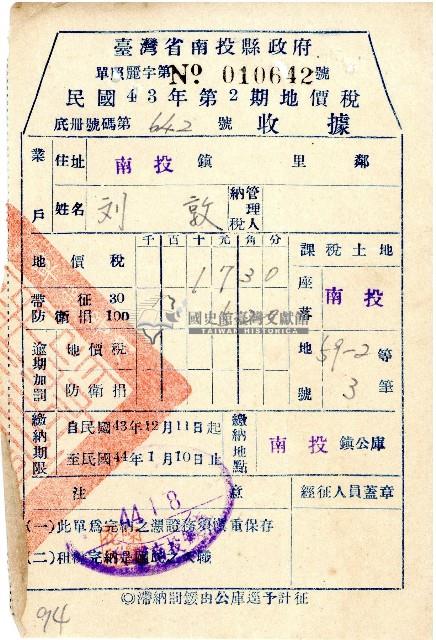 臺灣省南投縣政府
單照麗字第№ 010642號
民國43年第2期地價稅
底冊號碼第 642 號 收據
業戶
住址 南投鎮 里 鄰
姓名 刘 敦
納稅管理人
千百十元角分
課稅土地
地價稅 1730
帶征30
防衛捐100
座落 南投
國史館臺灣文獻館
TAIWAN HISTORICA
逾期加罰
地價稅
防衛捐
地號 59-2 等
3 筆
繳納期限
自民國43年12月11日起
至民國44年1月10日止
繳納地點
南投鎮公庫
注意
經征人員蓋章
44.1.8
(一)此單為完納之憑證務須慎重保存
(二)租
◎滯納罰鍰由公庫逕予計征
914